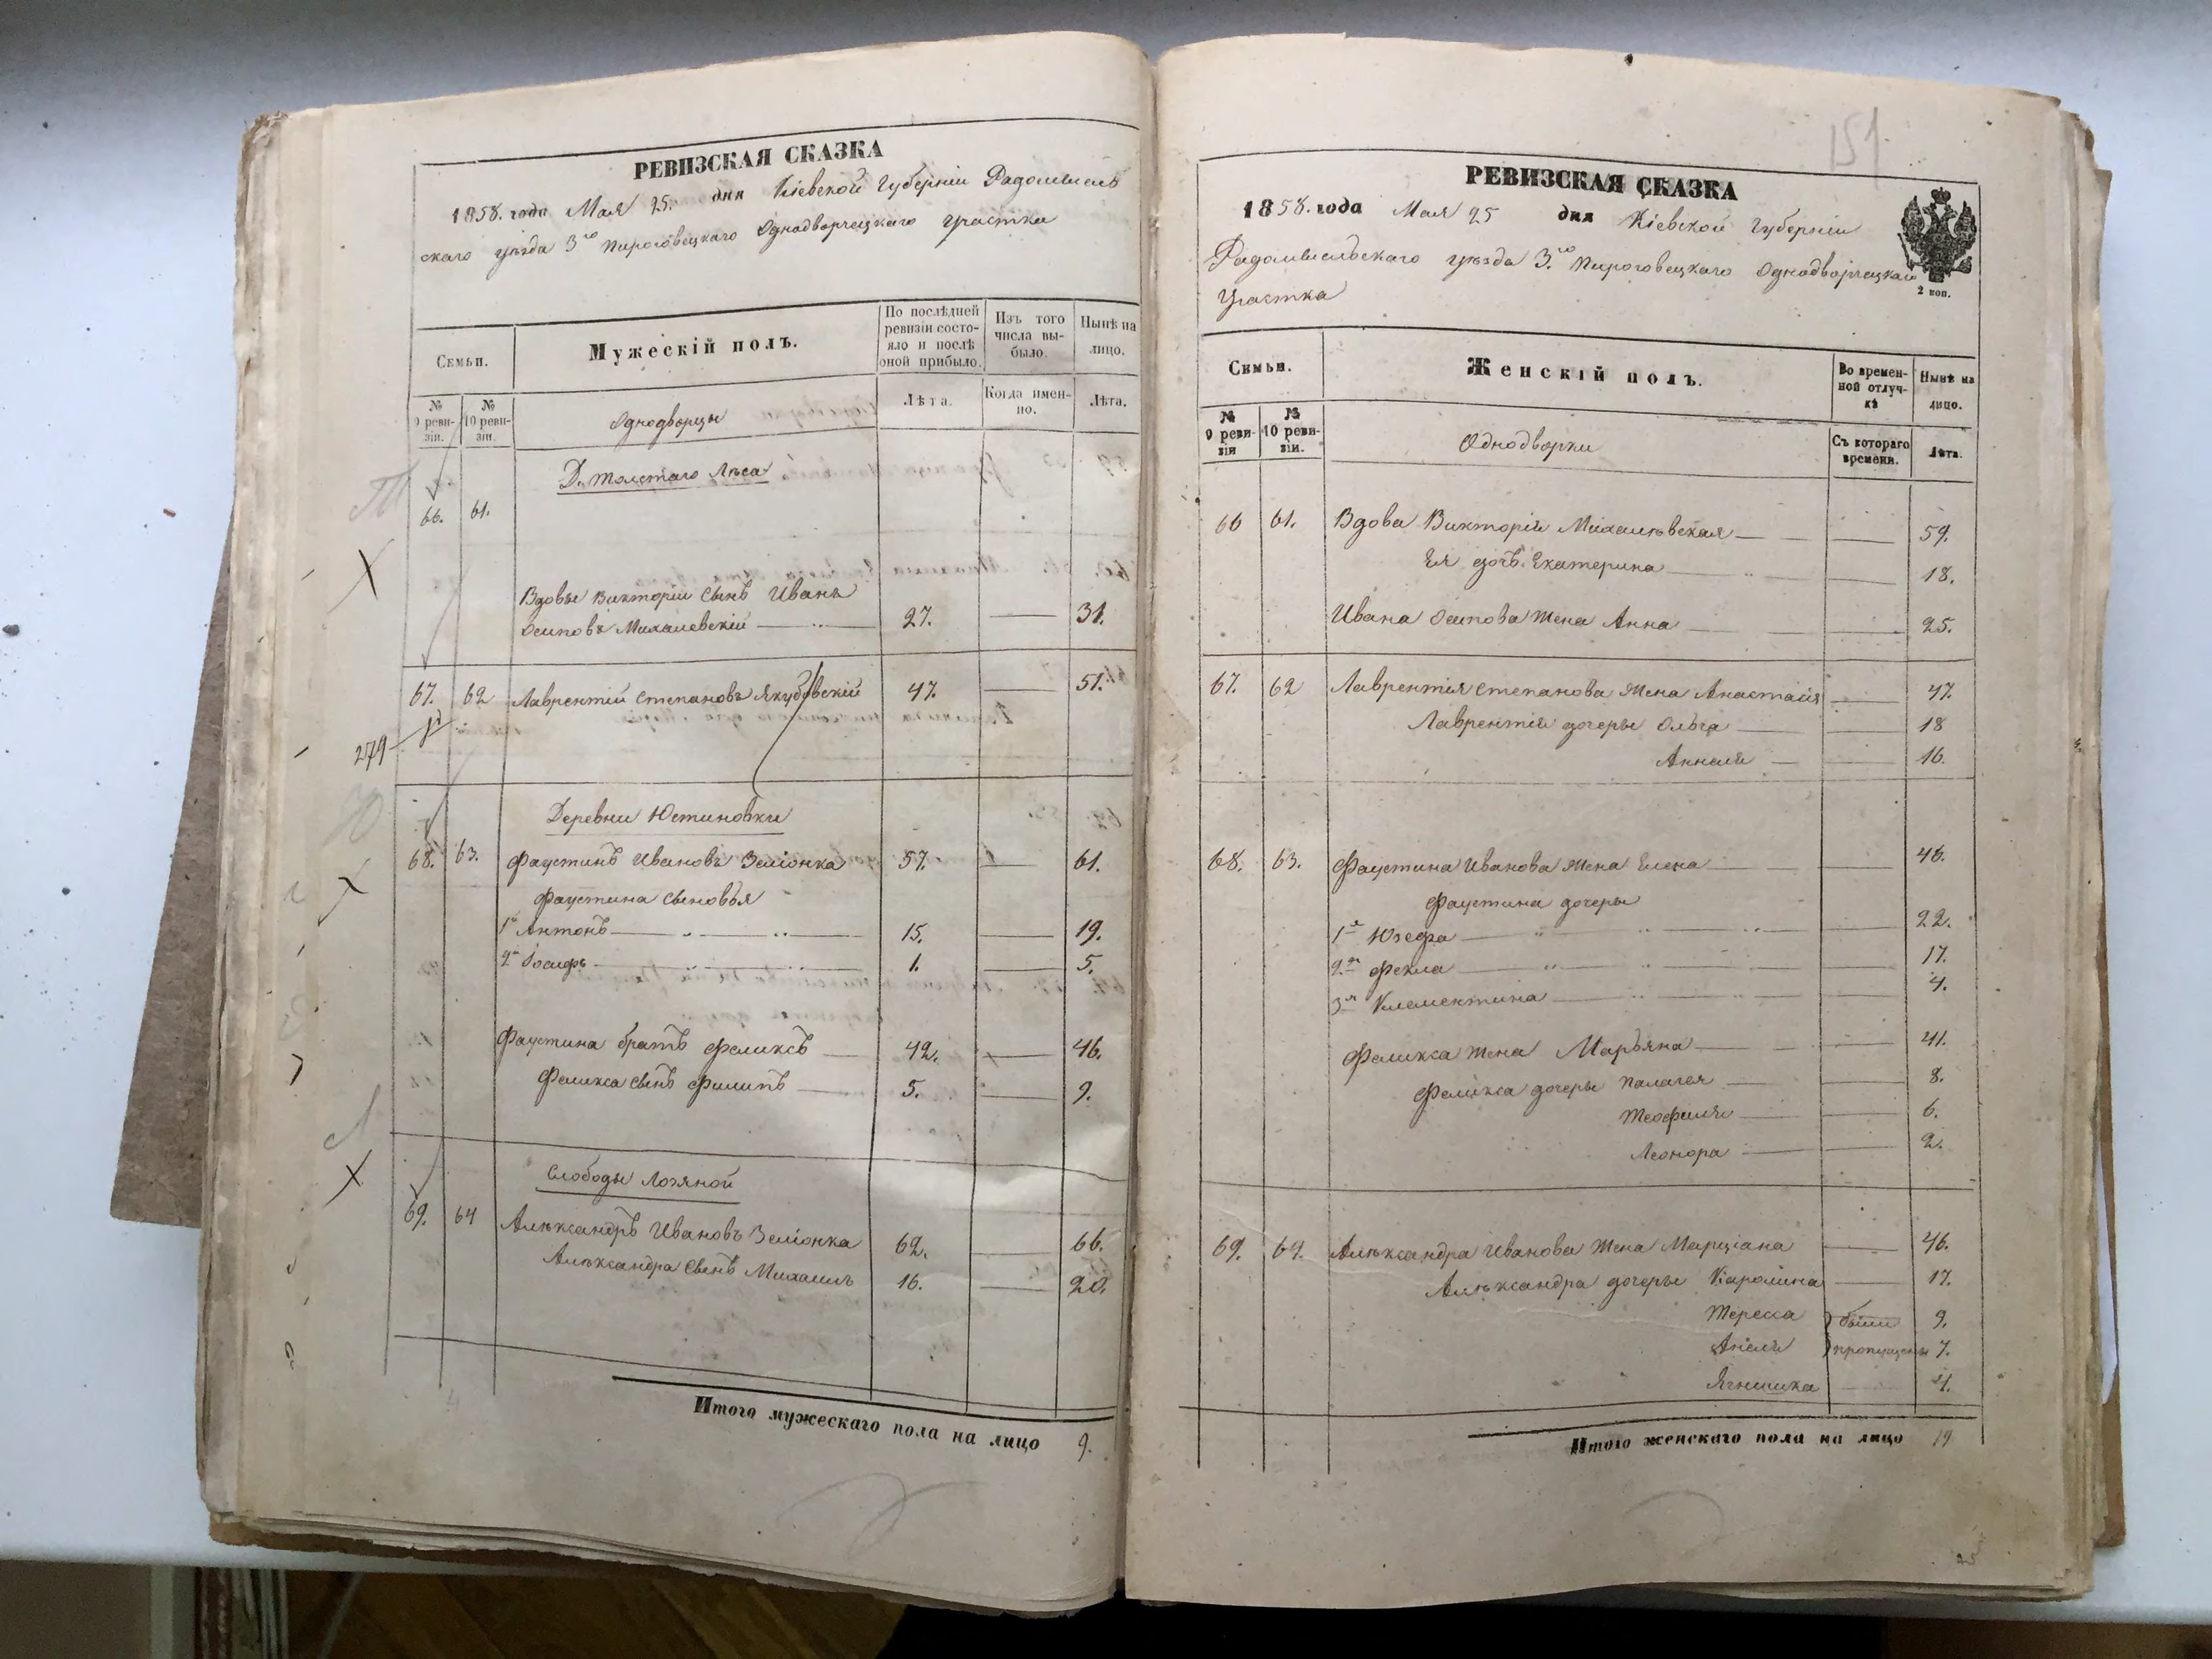 РЕВИЗСКАЯ СКАЗКА
1858. года Мая 25. дня Кіевской Губерніи Радомысль
скаго уѣзда 3го Пироговецкаго Однодворческаго участка
Семьи.
Мужескій полъ.
По послѣдней ревизіи состояло и послѣ оной прибыло.
Изъ того числа выбыло.
Нынѣ на лицо.
№ 9 ревизіи.
№ 10 ревизіи.
Однодворцы
Лѣта.
Когда именно.
Лѣта.
Д. Толстаго Лѣса
66. 61.
Вдовы Викторіи сынъ Иванъ
Осиповъ Михалевскій 27. 31.
67. 62 Лаврентій Степановъ Якубовскій 47. 51.
279
Деревни Юстиновки
68. 63. Фаустинъ Ивановъ Зеліонка 57. 61.
Фаустина сыновья
1й Антонъ 15. 19.
2й Іосифъ 1. 5.
Фаустина братъ Феликсъ 42. 46.
Феликса сынъ Филипъ 5. 9.
Слободы Лозяной
69. 64 Александръ Ивановъ Зеліонка 62. 66.
Александра сынъ Михаилъ 16. 20.
Итого мужескаго пола на лицо 9.
151
РЕВИЗСКАЯ СКАЗКА
1858. года Мая 25 дня Кіевской Губерніи
Радомысльскаго уѣзда 3.го Пироговецкаго Однодворческаго
Участка
2 коп.
Семьи.
Женскій полъ.
Во временной отлучкѣ
Нынѣ на лицо.
№ 9 ревизіи
№ 10 ревизіи.
Однодворки
Съ котораго времени.
Лѣта.
66 61. Вдова Викторія Михалѣвская 59.
Ея дочь Екатерина 18.
Ивана Осипова жена Анна 25.
67. 62 Лаврентія Степанова жена Анастасія 47.
Лаврентія дочеры Ольга 18
Аннеля 16.
68. 63. Фаустина Иванова жена Елена 46.
Фаустина дочеры
1я Юзефа 22.
2я Фекла 17.
3я Клементина 4.
Феликса жена Марьяна 41.
Феликса дочеры Палагея 8.
Теофиля 6.
Леонора 2.
69. 64. Александра Иванова жена Марціана 46.
Александра дочеры Каролина 17.
Тересса были 9.
Анеля пропущены 7.
Ягнишка 4.
Итого женскаго пола на лицо 19